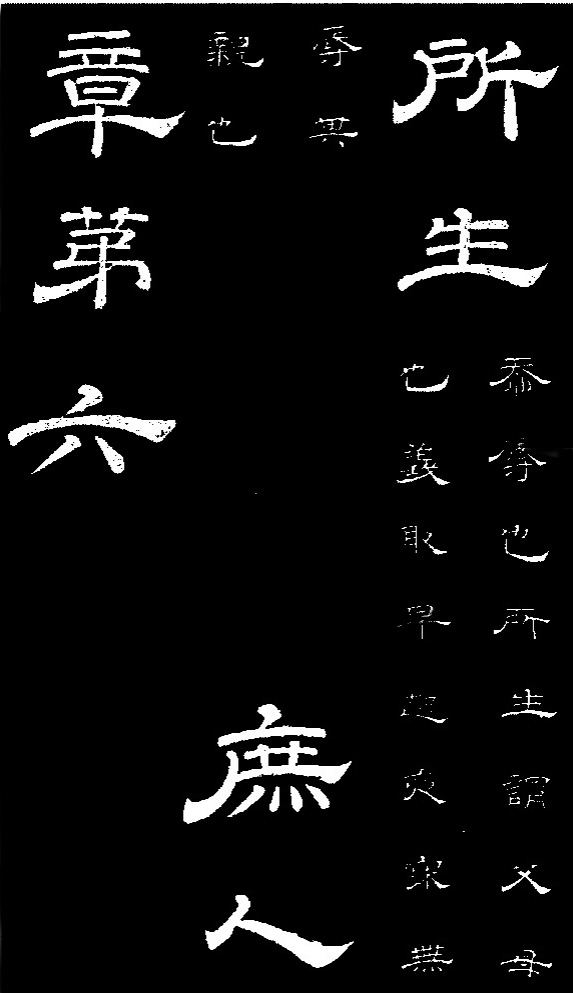 所生
忝辱也所生謂父母
也義取早起夜寐無
辱其
親也
庶人
章苐六